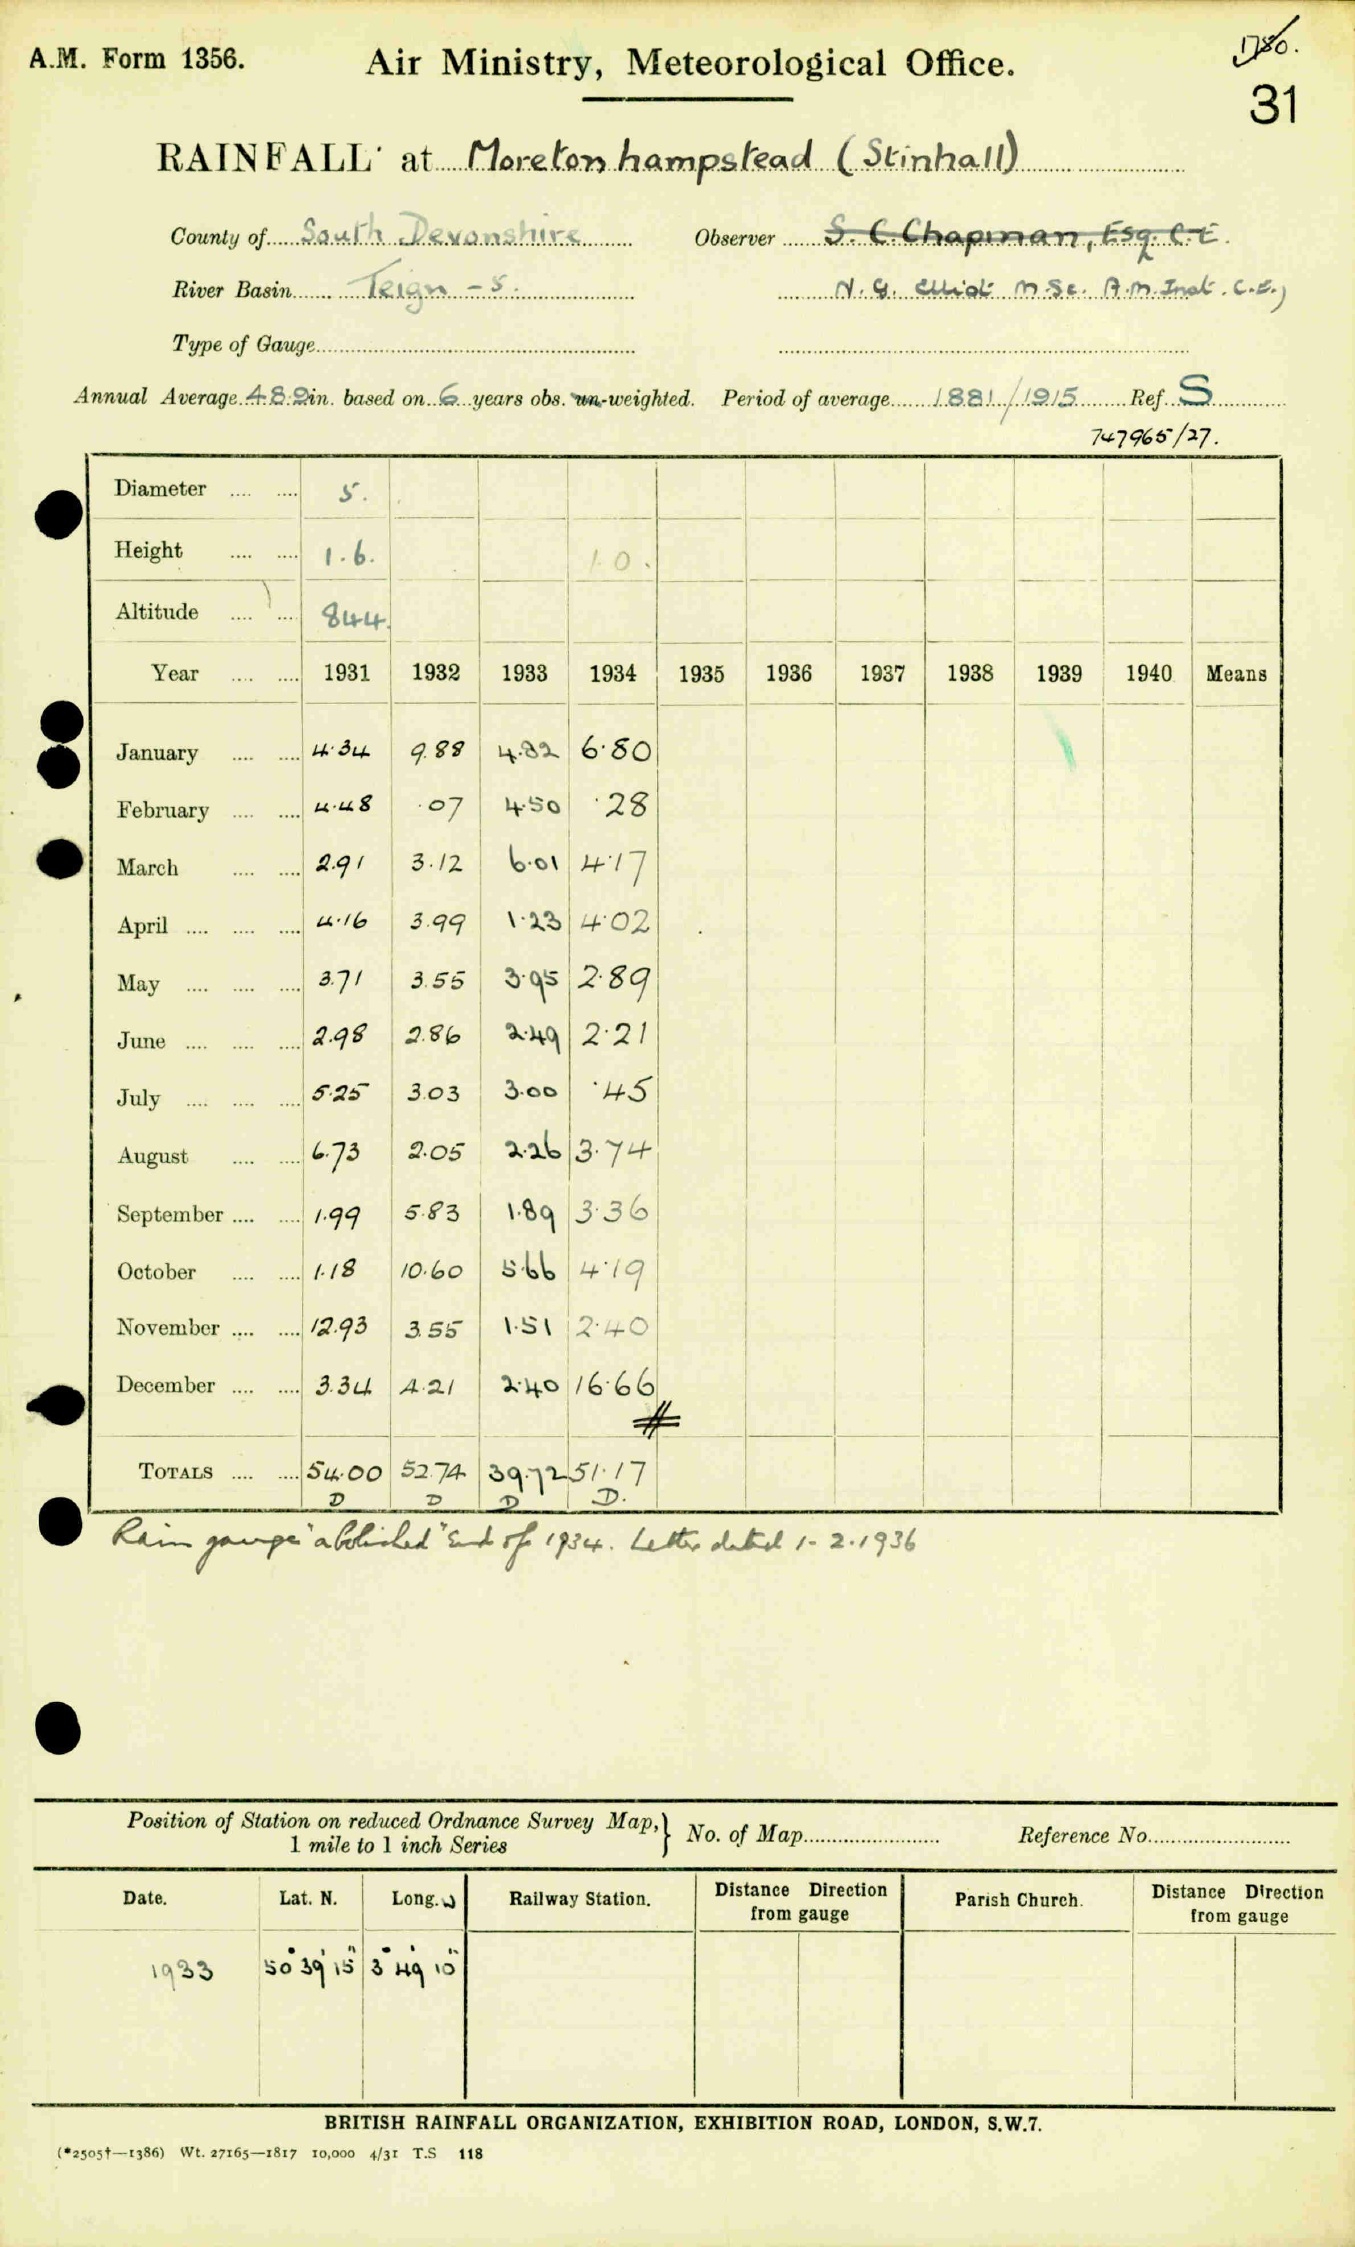 A.M. Form 1356.
Air Ministry, Meteorological Office.
1780.
31
RAINFALL at Moretonhampstead (Stinhall)
County of South Devonshire Observer S. C. Chapman, Esq. C.E.
River Basin Teign - S. N. G. Elliot M.Sc. A.M. Inst. C.E.,
Type of Gauge
Annual Average 48.9 in. based on 6 years obs. un-weighted. Period of average 1881/1915 Ref. S
747965/27.
Diameter 5.
Height 1.6. 1 0.
Altitude 844.
Year 1931 1932 1933 1934 1935 1936 1937 1938 1939 1940 Means
January 4.34 9.88 4.82 6.80
February 4.48 .07 4.50 .28
March 2.91 3.12 6.01 4.17
April 4.16 3.99 1.23 4.02
May 3.71 3.55 3.95 2.89
June 2.98 2.86 2.49 2.21
July 5.25 3.03 3.00 .45
August 6.73 2.05 2.26 3.74
September 1.99 5.83 1.89 3.36
October 1.18 10.60 5.66 4.19
November 12.93 3.55 1.51 2.40
December 3.34 4.21 2.40 16.66
TOTALS 54.00 52.74 39.72 51.17
D D D D.
Rain gauge "abolished" End of 1934. Letter dated 1-2.1936
Position of Station on reduced Ordnance Survey Map, 1 mile to 1 inch Series } No. of Map Reference No.
Date. Lat. N. Long. W Railway Station. Distance Direction from gauge Parish Church. Distance Direction from gauge
1933 50° 39' 15" 3° 49' 10"
BRITISH RAINFALL ORGANIZATION, EXHIBITION ROAD, LONDON, S.W.7.
(*2505†—1386) Wt. 27165—1817 10,000 4/31 T.S 118